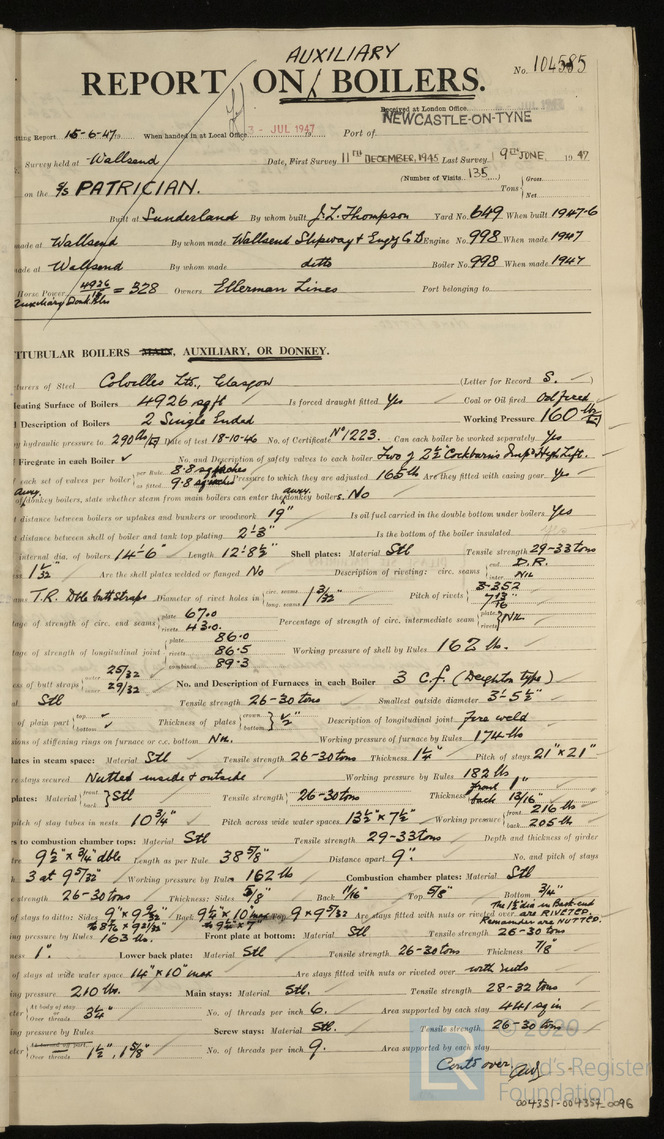 AUXILIARY
REPORT ON BOILERS.
No. 104585
Received at London Office
NEWCASTLE-ON-TYNE
ting Report 15-6-47 When handed in at Local Office 3 - JUL 1947 Port of
Survey held at Wallsend Date, First Survey 11TH DECEMBER, 1945 Last Survey 9TH JUNE, 1947
(Number of Visits 135) Gross Tons Net
on the S/S PATRICIAN.
Built at Sunderland By whom built J. L. Thompson Yard No. 649 When built 1947-6
made at Wallsend By whom made Wallsend Slipway & Engg Co Ld Engine No. 998 When made 1947
ade at Wallsend By whom made ditto Boiler No. 998 When made 1947
Horse Power 4926/15 = 328 Owners Ellerman Lines Port belonging to
Auxiliary Donk. Blrs
TITUBULAR BOILERS MAIN, AUXILIARY, OR DONKEY.
turers of Steel Colvilles Ltd., Glasgow (Letter for Record S.)
Heating Surface of Boilers 4926 sq ft Is forced draught fitted Yes Coal or Oil fired Oil fired
d Description of Boilers 2 Single Ended Working Pressure 160 lbs
y hydraulic pressure to 290 lbs Date of test 18-10-46 No. of Certificate No 1223. Can each boiler be worked separately Yes
Firegrate in each Boiler No. and Description of safety valves to each boiler Two of 2½" Cockburn's Impd High Lift.
each set of valves per boiler per Rule 8.8 sq inches as fitted 9.8 sq inches Pressure to which they are adjusted 165 lb Are they fitted with easing gear Yes
auxy. auxy.
of donkey boilers, state whether steam from main boilers can enter the donkey boilers. No
t distance between boilers or uptakes and bunkers or woodwork 19" Is oil fuel carried in the double bottom under boilers Yes
t distance between shell of boiler and tank top plating 2'-3" Is the bottom of the boiler insulated
nternal dia. of boilers 14'-6" Length 12'-8½" Shell plates: Material Stl Tensile strength 29-33 tons
1 1/32" Are the shell plates welded or flanged No Description of riveting: circ. seams end D.R. inter. Nil
T.R. Dble butt straps Diameter of rivet holes in circ. seams long. seams 1 3/32" Pitch of rivets 3.352 7 13/16"
tage of strength of circ. end seams plate 67.0 rivets 43.0. Percentage of strength of circ. intermediate seam plate rivets Nil
tage of strength of longitudinal joint plate 86.0 rivets 86.5 combined 89.3 Working pressure of shell by Rules 162 lb.
ess of butt straps outer 25/32 inner 29/32 No. and Description of Furnaces in each Boiler 3 C.f. (Deighton type)
Stl Tensile strength 26-30 tons Smallest outside diameter 3'-5½"
of plain part top bottom Thickness of plates crown bottom ½" Description of longitudinal joint Fire weld
sions of stiffening rings on furnace or c.c. bottom Nil. Working pressure of furnace by Rules 174 lb
lates in steam space: Material Stl Tensile strength 26-30 tons Thickness 1¼" Pitch of stays 21" x 21"
re stays secured Nutted inside & outside Working pressure by Rules 182 lb
plates: Material front back Stl Tensile strength 26-30 tons Thickness front 1" back 13/16"
pitch of stay tubes in nests 10¾" Pitch across wide water spaces 13½" x 7½" Working pressure front 216 lb back 205 lb
s to combustion chamber tops: Material Stl Tensile strength 29-33 tons Depth and thickness of girder
tre 9½" x ¾" dble Length as per Rule 38 5/8" Distance apart 9". No. and pitch of stays
h 3 at 9 5/32" Working pressure by Rules 162 lb Combustion chamber plates: Material Stl
e strength 26-30 tons Thickness: Sides 5/8" Back 11/16" Top 5/8" Bottom ¾"
of stays to ditto: Sides 9" x 9 9/32" Back 9¼" x 10 max Top 9 x 9 5/32 Are stays fitted with nuts or riveted over The 1½ dia in Back end are RIVETED. Remainder are NUTTED.
ng pressure by Rules 163 lb. Front plate at bottom: Material Stl Tensile strength 26-30 tons
ness 1". Lower back plate: Material Stl Tensile strength 26-30 tons Thickness 7/8"
of stays at wide water space 14" x 10" max Are stays fitted with nuts or riveted over with nuts
ing pressure 210 lb. Main stays: Material Stl. Tensile strength 28-32 tons
eter At body of stay Over threads 3¼" No. of threads per inch 6. Area supported by each stay 441 sq in
ing pressure by Rules Screw stays: Material Stl. Tensile strength 26-30 tons
eter At turned off part Over threads 1½", 1 5/8" No. of threads per inch 9. Area supported by each stay
Contd over
© 2020
Lloyd's Register
Foundation
004351-004357-0096